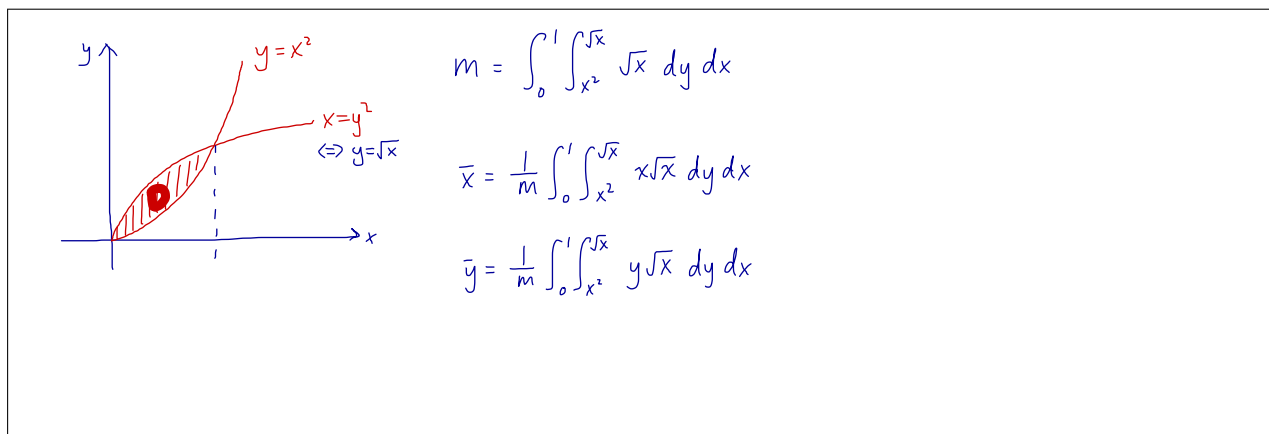 y
y = x²
x = y²
⇔ y = √x
D
x
m = ∫₀¹ ∫_{x²}^{√x} √x dy dx
x̄ = 1/m ∫₀¹ ∫_{x²}^{√x} x√x dy dx
ȳ = 1/m ∫₀¹ ∫_{x²}^{√x} y√x dy dx